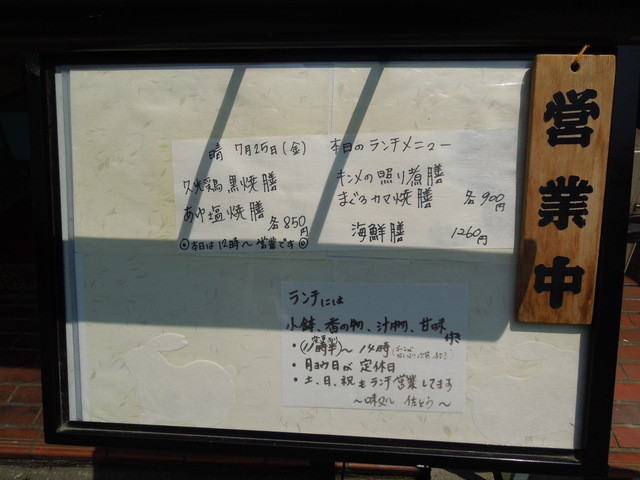 晴 7月25日(金) 本日のランチメニュー
黒焼膳
あゆ塩焼膳 各850円
◎本日は12時〜営業です◎
キンメの照り煮膳
まぐろカマ焼膳 各900円
海鮮膳 1260円
営業中
ランチには
小鉢、香の物、汁物、甘味付き
・11時半〜14時
・月ヨウ日が定休日
・土、日、祝もランチ営業してます
佐とう〜